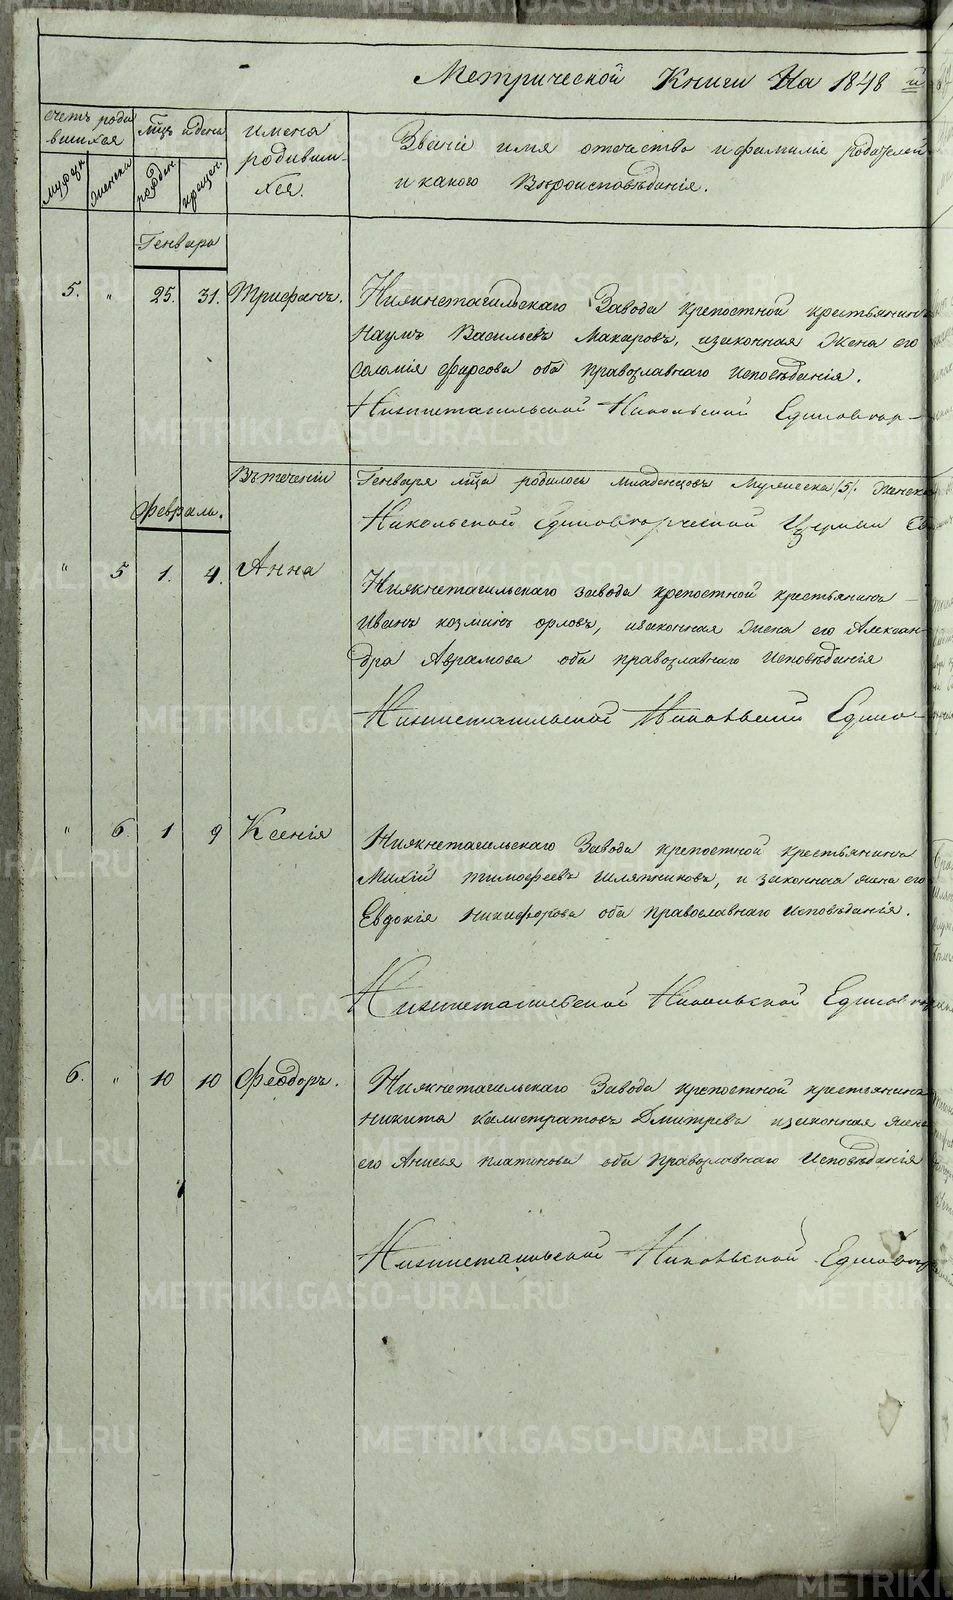 Метрической Книги На 1848 й
счетъ роди
вшихся
мужск
женски
мцъ и день
рожден.
крещен.
имена
родивши-
хся.
Званіи имя отечество и фамиліе родителей
и какого Вѣроисповѣданія.
Генваря
5. " 25. 31. Трифанъ.
Нижнетагильскаго Завода крепостной крестьянинъ
Наумъ Васильевъ Макаровъ, изаконная Жена его
Соломія фирсова оба православнаго исповѣданія.
Нижнетагильской Никольской Единовѣр-
Въ течении Генваря мца родилось младенцовъ Мужеска /5/. Женска
Никольской Единоверческой Церкви
Февраль.
" 5 1. 4. Анна
Нижнетагильскаго завода крепостной крестьянинъ
Иванъ козминъ орловъ, изаконная Жена его Алексан-
дра Аврамова оба православнаго Исповѣданія
Нижнетагильской Никольской Едино-
" 6. 1 9 Ксенія
Нижнетагильскаго Завода крепостной крестьянинъ
Михій тимофеевъ шляпниковъ, и законная жена его
Евдокія никифорова оба православнаго исповѣданія.
Нижнетагильской Никольской Единовер
6. " 10 10 Феодоръ.
Нижнетагильскаго Завода крепостной крестьянинъ
никита калистратовъ Дмитревъ изаконная Жена
его Анисья платонова оба православнаго Исповѣданія
Нижнетагильской Никольской Единовѣр
METRIKI.GASO-URAL.RU